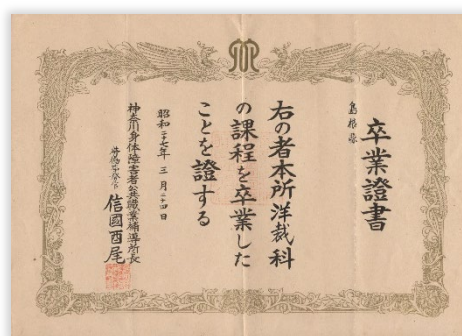 卒業證書
島根縣
右の者本所洋裁科
の課程を卒業した
ことを證する
昭和二十七年三月二十四日
神奈川身体障害者公共職業補導所長
信國酉尾